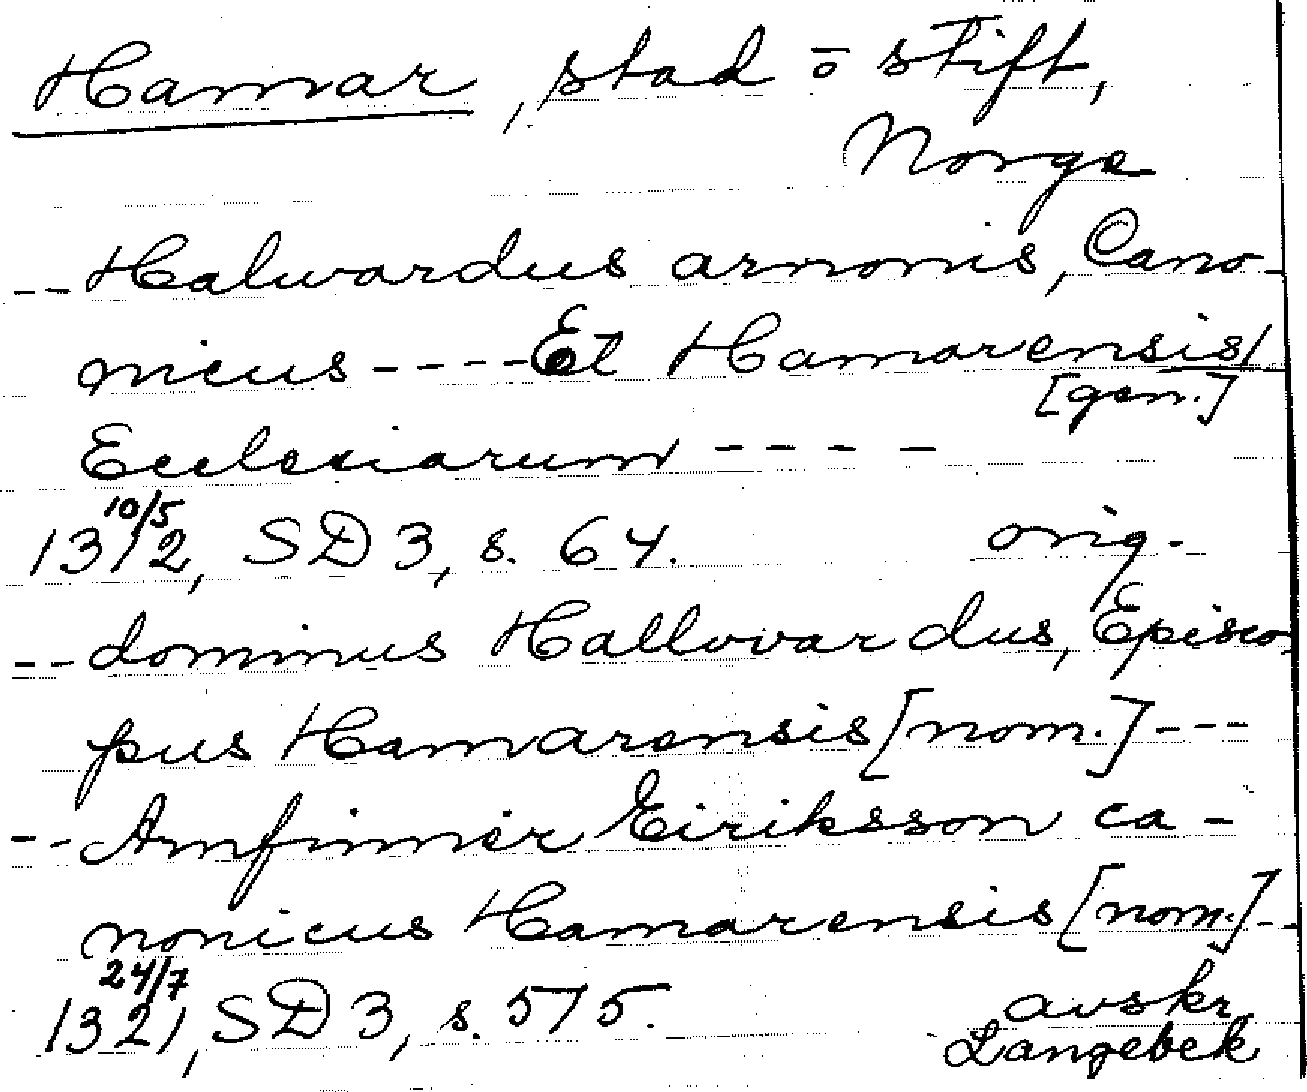 Hamar, stad o stift,
Norge
-- Halwardus arnonis, Cano-
nicus ---- Et Hamarensis/
[gen.]
Ecclesiarum ----
10/5
1312, SD 3, s. 64. orig.
-- dominus Hallvvardus, Episco-
pus Hamarensis [nom.] ---
-- Arnfinner Eiriksson ca-
nonicus Hamarensis [nom.] --
24/7
1321, SD 3, s. 575. avskr.
Langebek